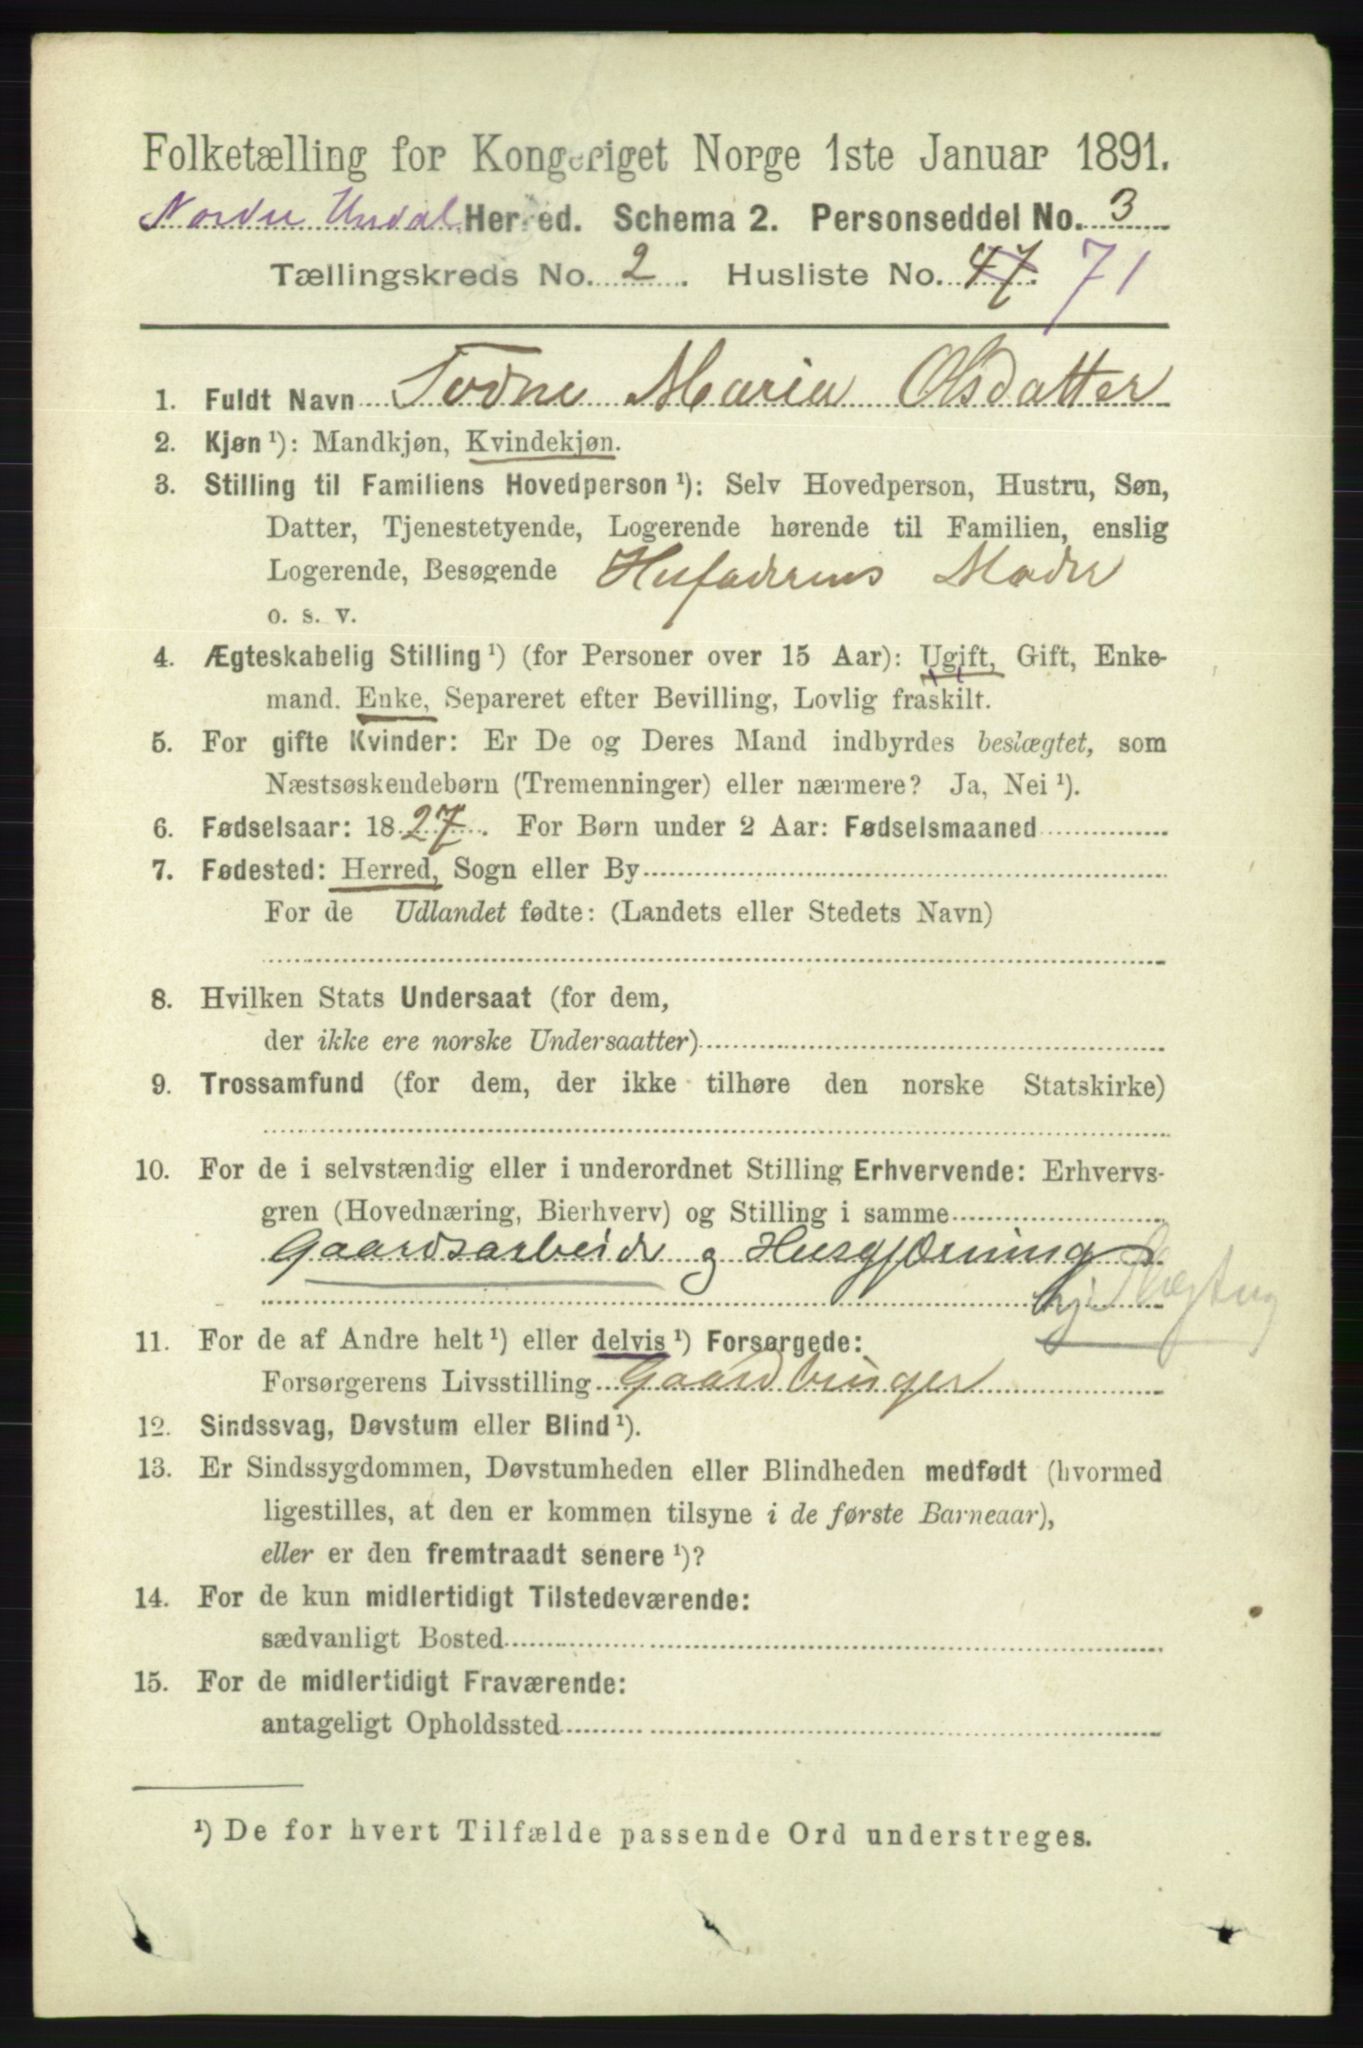 Folketælling for Kongeriget Norge 1ste Januar 1891.
Nordre Undal Herred. Schema 2. Personseddel No. 3
Tællingskreds No. 2. Husliste No. 47. 71
1. Fuldt Navn Todne Maria Olsdatter
2. Kjøn ¹): Mandkjøn, Kvindekjøn.
3. Stilling til Familiens Hovedperson ¹): Selv Hovedperson, Hustru, Søn,
Datter, Tjenestetyende, Logerende hørende til Familien, enslig
Logerende, Besøgende Husfaderens Moder
o. s. v.
4. Ægteskabelig Stilling ¹) (for Personer over 15 Aar): Ugift, Gift, Enke-
mand. Enke, Separeret efter Bevilling, Lovlig fraskilt.
5. For gifte Kvinder: Er De og Deres Mand indbyrdes beslægtet, som
Næstsøskendebørn (Tremenninger) eller nærmere? Ja, Nei ¹).
6. Fødselsaar: 1827. For Børn under 2 Aar: Fødselsmaaned
7. Fødested: Herred, Sogn eller By
For de Udlandet fødte: (Landets eller Stedets Navn)
8. Hvilken Stats Undersaat (for dem,
der ikke ere norske Undersaatter)
9. Trossamfund (for dem, der ikke tilhøre den norske Statskirke)
10. For de i selvstændig eller i underordnet Stilling Erhvervende: Erhvervs-
gren (Hovednæring, Bierhverv) og Stilling i samme
Gaardsarbeide og Husgjerning
hj. Slægtng
11. For de af Andre helt ¹) eller delvis ¹) Forsørgede:
Forsørgerens Livsstilling Gaardbruger
12. Sindssvag, Døvstum eller Blind ¹).
13. Er Sindssygdommen, Døvstumheden eller Blindheden medfødt (hvormed
ligestilles, at den er kommen tilsyne i de første Barneaar),
eller er den fremtraadt senere ¹)?
14. For de kun midlertidigt Tilstedeværende:
sædvanligt Bosted
15. For de midlertidigt Fraværende:
antageligt Opholdssted
¹) De for hvert Tilfælde passende Ord understreges.